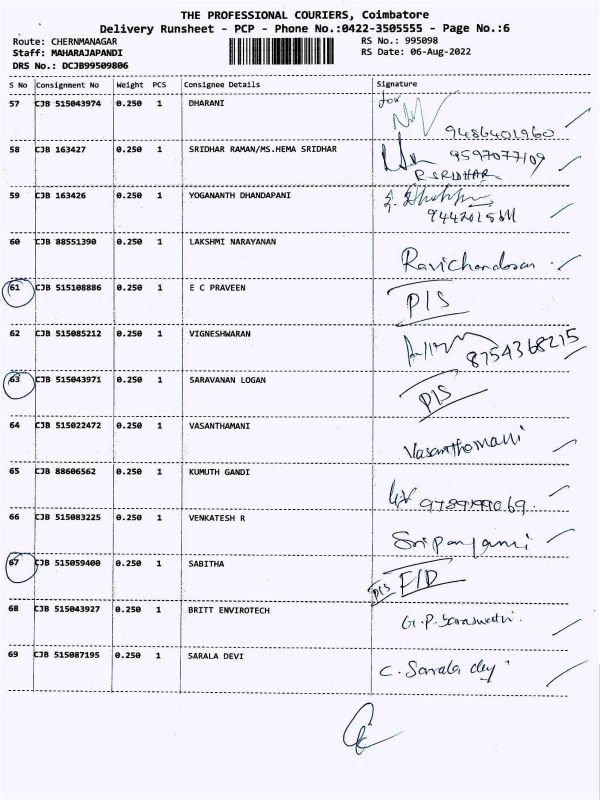 THE PROFESSIONAL COURIERS, Coimbatore
Delivery Runsheet - PCP - Phone No.:0422-3505555 - Page No.:6
Route: CHERNMANAGAR RS No.: 995098
Staff: MAHARAJAPANDI RS Date: 06-Aug-2022
DRS No.: DCJB99509806
S No Consignment No Weight PCS Consignee Details Signature
57 CJB 515043974 0.250 1 DHARANI for
9486401960
58 CJB 163427 0.250 1 SRIDHAR RAMAN/MS.HEMA SRIDHAR 9597077109
R.SRIDHAR
59 CJB 163426 0.250 1 YOGANANTH DHANDAPANI
60 CJB 88551390 0.250 1 LAKSHMI NARAYANAN
Ravichandran
61 CJB 515108886 0.250 1 E C PRAVEEN
P/S
62 CJB 515085212 0.250 1 VIGNESHWARAN
8754368215
63 CJB 515043971 0.250 1 SARAVANAN LOGAN
P/S
64 CJB 515022472 0.250 1 VASANTHAMANI
Vasanthamani
65 CJB 88606562 0.250 1 KUMUTH GANDI
66 CJB 515083225 0.250 1 VENKATESH R
67 CJB 515059400 0.250 1 SABITHA
P/S F/D
68 CJB 515043927 0.250 1 BRITT ENVIROTECH
G.P. Saraswathi
69 CJB 515087195 0.250 1 SARALA DEVI
C. Sarala dey